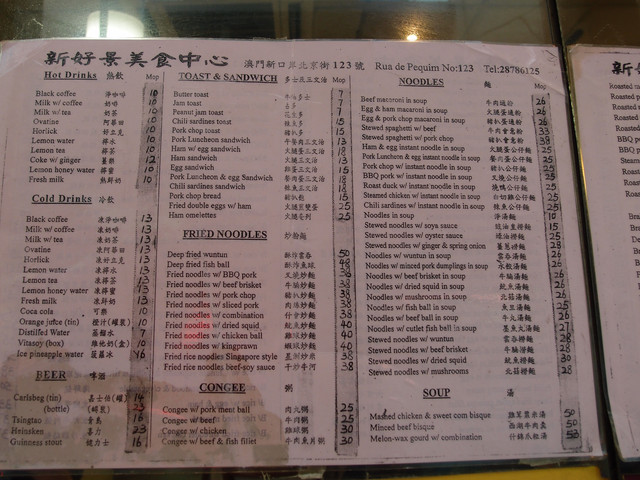 新好景美食中心 澳門新口岸北京街123號 Rua de Pequim No:123 Tel:28786125
Hot Drinks 熱飲 Mop
Black coffee 淨咖啡 10
Milk w/ coffee 奶啡 10
Milk w/ tea 奶茶 10
Ovatine 阿華田 10
Horlick 好立克 10
Lemon water 檸水 10
Lemon tea 檸茶 10
Coke w/ ginger 薑樂 12
Lemon honey water 檸蜜 10
Fresh milk 熱鮮奶 10
Cold Drinks 冷飲
Black coffee 凍淨咖啡 13
Milk w/ coffee 凍奶啡 13
Milk w/ tea 凍奶茶 13
Ovatine 凍阿華田 13
Horlick 凍好立克 13
Lemon water 凍檸水 13
Lemon tea 凍檸茶 13
Lemon honey water 凍檸蜜 13
Fresh milk 凍鮮奶 13
Coca cola 可樂 10
Orange juice (tin) 橙汁(罐裝) 10
Distilled Water 蒸餾水 7
Vitasoy (box) 維他奶(盒) 10
Ice pineapple water 菠蘿冰 16
BEER 啤酒
Carlsberg (tin) 嘉士伯(罐) 14
(bottle) (樽裝) 23
Tsingtao 青島 16
Heinsken 喜力 23
Guinness stout 健力士 16
TOAST & SANDWICH 多士及三文治 Mop
Butter toast 牛油多士 7
Jam toast 7
Peanut jam toast 7
Chili sardines toast 15
Pork chop toast 15
Pork Luncheon sandwich 午餐肉三文治 13
Ham w/ egg sandwich 火腿蛋三文治 13
Ham sandwich 火腿三文治 13
Egg sandwich 雞蛋三文治 15
Pork Luncheon & egg Sandwich 餐肉蛋三文治 18
Chili sardines sandwich 辣魚三文治 18
Pork chop bread 豬扒飽 15
Fried double eggs w/ ham 火腿煎雙蛋 25
Ham omelettes 火腿奄列 25
FRIED NOODLES 炒粉麵
Deep fried wuntun 酥炸雲吞 50
Deep fried fish ball 酥炸魚球 48
Fried noodles w/ BBQ pork 叉燒炒麵 38
Fried noodles w/ beef brisket 牛腩炒麵 38
Fried noodles w/ pork chop 豬扒炒麵 38
Fried noodles w/ sliced pork 肉絲炒麵 38
Fried noodles w/ combination 什會炒麵 38
Fried noodles w/ dried squid 魷魚炒麵 40
Fried noodles w/ chicken ball 雞球炒麵 40
Fried noodles w/ kingprawn 蝦球炒麵 40
Fried rice noodles Singapore style 星洲炒米 38
Fried rice noodles beef-soy sauce 干炒牛河 38
CONGEE 粥
Congee w/ pork meat ball 肉丸粥 25
Congee w/ beef 牛肉粥 25
Congee w/ chicken 雞球粥 30
Congee w/ beef & fish fillet 牛肉魚片粥 30
NOODLES 麵 Mop
Beef macaroni in soup 牛肉通粉 26
Egg & ham macaroni in soup 火腿蛋通粉 26
Egg & pork chop macaroni in soup 豬扒蛋通粉 28
Stewed spaghetti w/ beef 牛肉會意粉 33
Stewed spaghetti w/ pork chop 豬扒會意粉 38
Ham & egg instant noodle in soup 火腿蛋公仔麵 25
Pork Luncheon & egg instant noodle in soup 餐肉蛋公仔麵 25
Pork chop w/ egg instant noodle in soup 豬扒蛋公仔麵 25
BBQ pork w/ instant noodle in soup 叉燒公仔麵 25
Roast duck w/ instant noodle in soup 燒鴨公仔麵 25
Steamed chicken w/ instant noodle in soup 白切雞公仔麵 25
Chili sardines w/ instant noodle in soup 辣魚公仔麵 25
Noodles in soup 淨湯麵 10
Stewed noodles w/ soya sauce 豉油皇撈麵 15
Stewed noodles w/ oyster sauce 蠔油撈麵 25
Stewed noodles w/ ginger & spring onion 薑蔥撈麵 28
Noodles w/ wuntun in soup 雲吞湯麵 26
Noodles w/ minced pork dumplings in soup 水餃湯麵 26
Noodles w/ beef brisket in soup 牛腩湯麵 26
Noodles w/ dried squid in soup 魷魚湯麵 26
Noodles w/ mushrooms in soup 北菇湯麵 28
Noodles w/ fish ball in soup 魚旦湯麵 25
Noodles w/ beef ball in soup 牛丸湯麵 26
Noodles w/ cutlet fish ball in soup 墨魚丸湯麵 27
Stewed noodles w/ wuntun 雲吞撈麵 28
Stewed noodles w/ beef brisket 牛腩撈麵 28
Stewed noodles w/ dried squid 魷魚撈麵 28
Stewed noodles w/ mushrooms 北菇撈麵 28
SOUP 湯
Mashed chicken & sweet corn bisque 雞茸粟米湯 50
Minced beef bisque 西湖牛肉羹 50
Melon-wax gourd w/ combination 什錦瓜粒湯
新好
Roasted
Roasted
Roast
BBQ p
Roast
BBQ